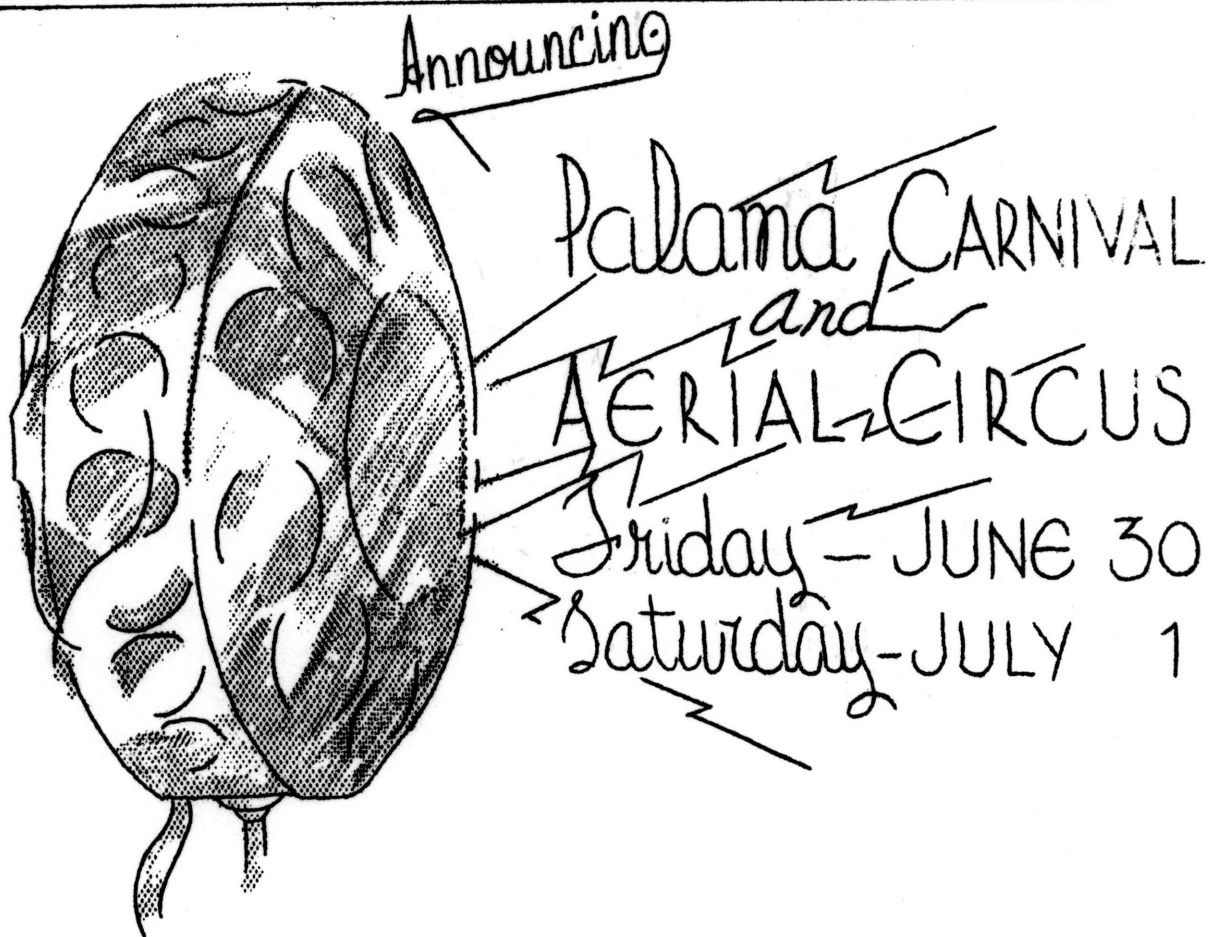 Announcing
Palama CARNIVAL
and
AERIAL CIRCUS
Friday - JUNE 30
Saturday - JULY 1